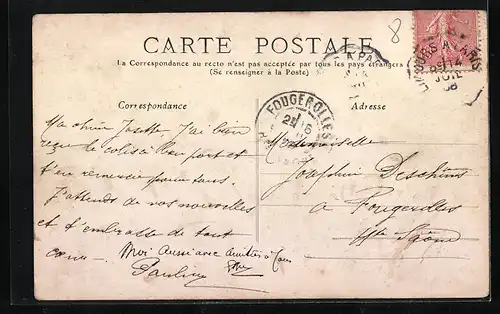 8
CARTE POSTALE
La Correspondance au recto n'est pas acceptée par tous les pays étrangers
(Se renseigner à la Poste)
Correspondance
Adresse
FOUGEROLLES
Ma chère Josette, J'ai bien
reçu le colis à bon port et
t'en remercie
J'attends de vos nouvelles
et t'embrasse de tout
cœur.
Moi Aussi avec amitiés à tous
Pauline
Mademoiselle
Joséphine Deschins
à Fougerolles
Hte Saône